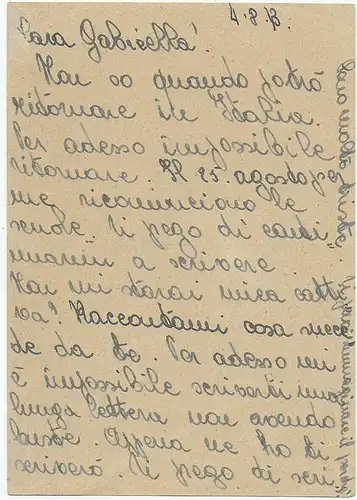 4.8.43
Cara Gabriella!
Non so quando potrò
ritornare in Italia.
Per adesso impossibile
ritornare. Il 25 agosto per
me ricominciono le
scuole. Ti pego di conti„
nuarmi a scrivere
Non mi starai mica catti
va? Raccontami cosa succe
de da te. Per adesso mi
è impossibile scriverti una
lunga lettera non avendo
buste. Appena ne ho ti
scriverò. Ti pego di scri„